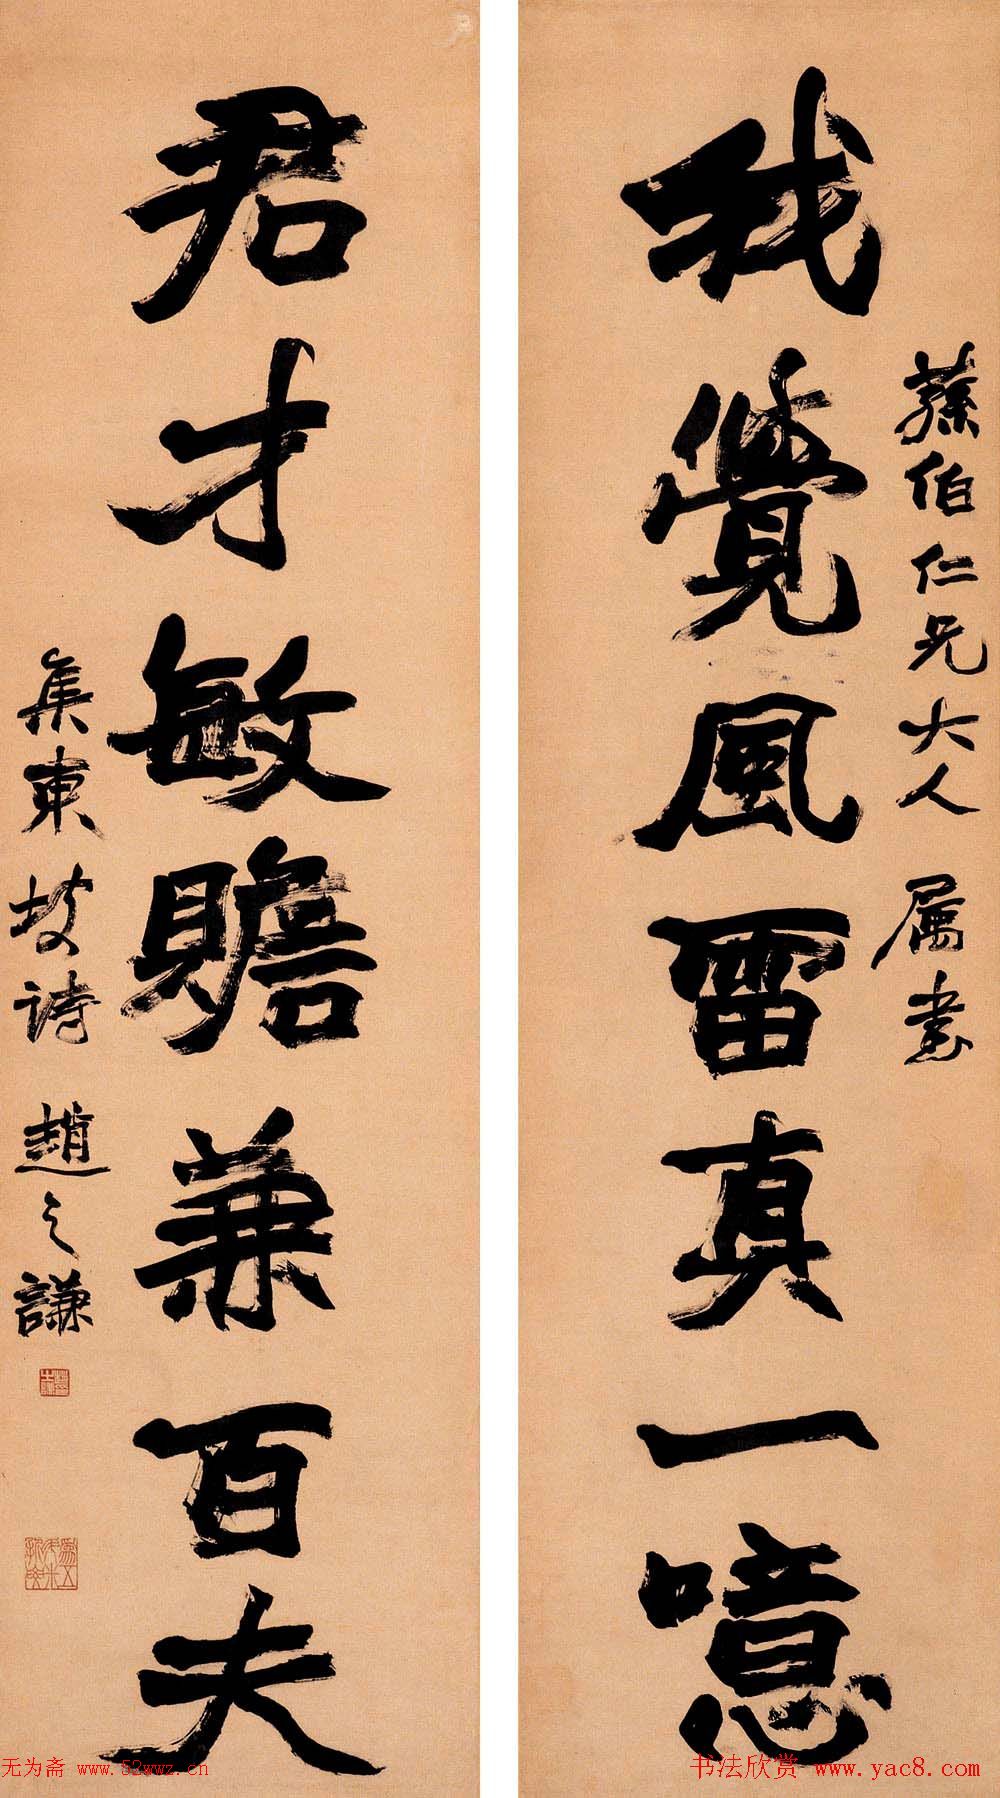 蓀伯仁兄大人 属書
我覺風雷真一噫
君才敏贍兼百夫
集東坡诗 趙之謙
无为斋 www.52wwz.cn
书法欣赏 www.yac8.com